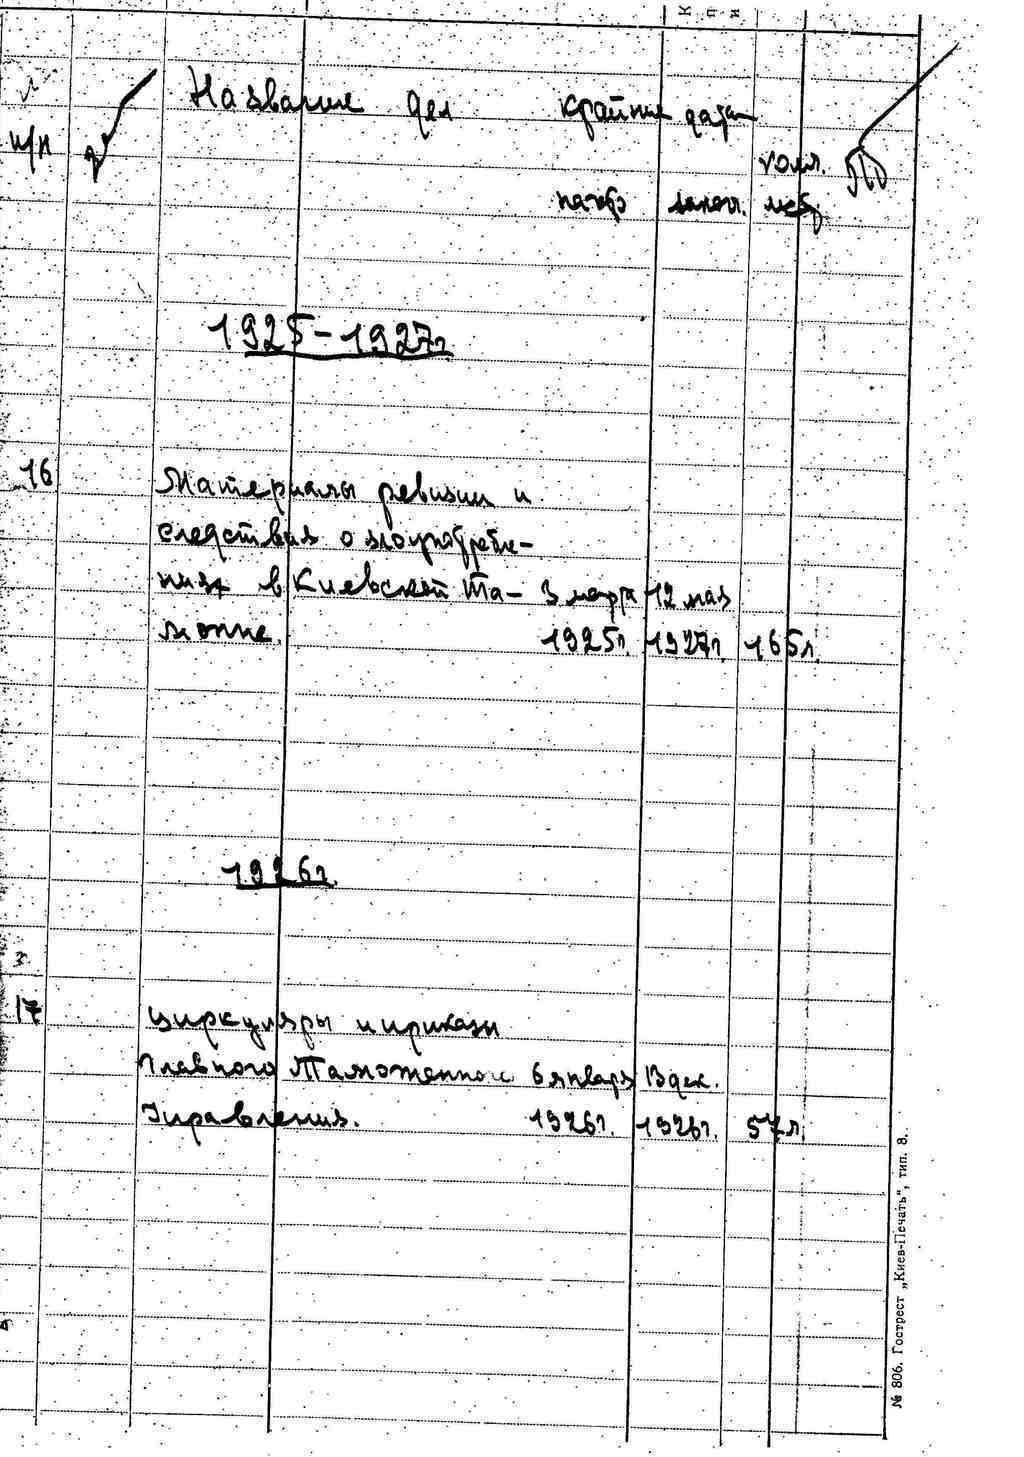 К п и
п/п Название дел крайние даты
колл.
начало законч. лист
1925-1927г.
16 Материалы ревизии и
следствия о злоупотребле-
ниях в Киевской Та- 3 марта 12 мая
можне. 1925г. 1927г. 165л.
1926г.
3
17 Циркуляры и приказы
Главного Таможенного 6 января 13 дек.
Управления. 1926г. 1926г. 57л.
№ 806. Гострест „Киев-Печать", тип. 8.